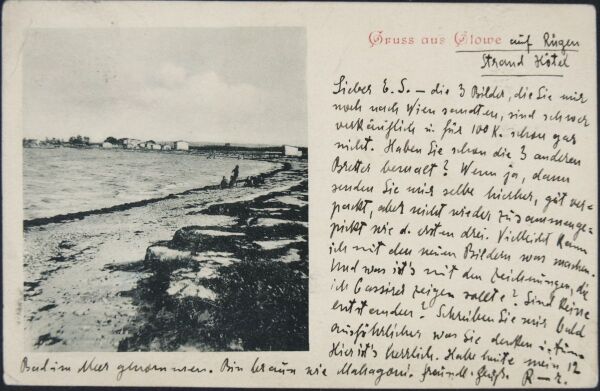 Gruss aus Glowe auf Rügen
Strand Hôtel
Lieber E. S. – die 3 Bilder, die Sie mir
noch nach Wien sandten, sind schwer
verkäuflich u. für 100 K. schon gar
nicht. Haben Sie schon die 3 anderen
Bretter bemalt? Wenn ja, dann
senden Sie mir selbe hieher, gut ver-
packt, aber nicht wieder zusammenge-
pickt wie d. ersten drei. Vielleicht kann
ich mit den neuen Bildern was machen.
Und was ist's mit den Zeichnungen, die
ich Cassirer zeigen sollte? Sind keine
entstanden. Schreiben Sie mir bald
ausführlicher was Sie denken u. tun
Hier ist's herrlich. Habe heute mein 12
Bad im Meer genommen. Bin braun wie Mahagoni. freundl. Grüße. R–r.